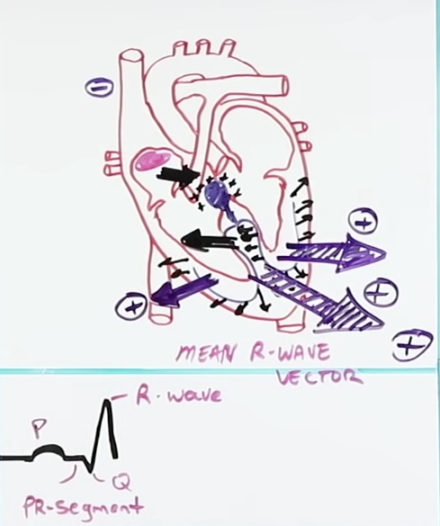 −
+
+
+
+
MEAN R-WAVE
VECTOR
R-wave
P
Q
PR-segment